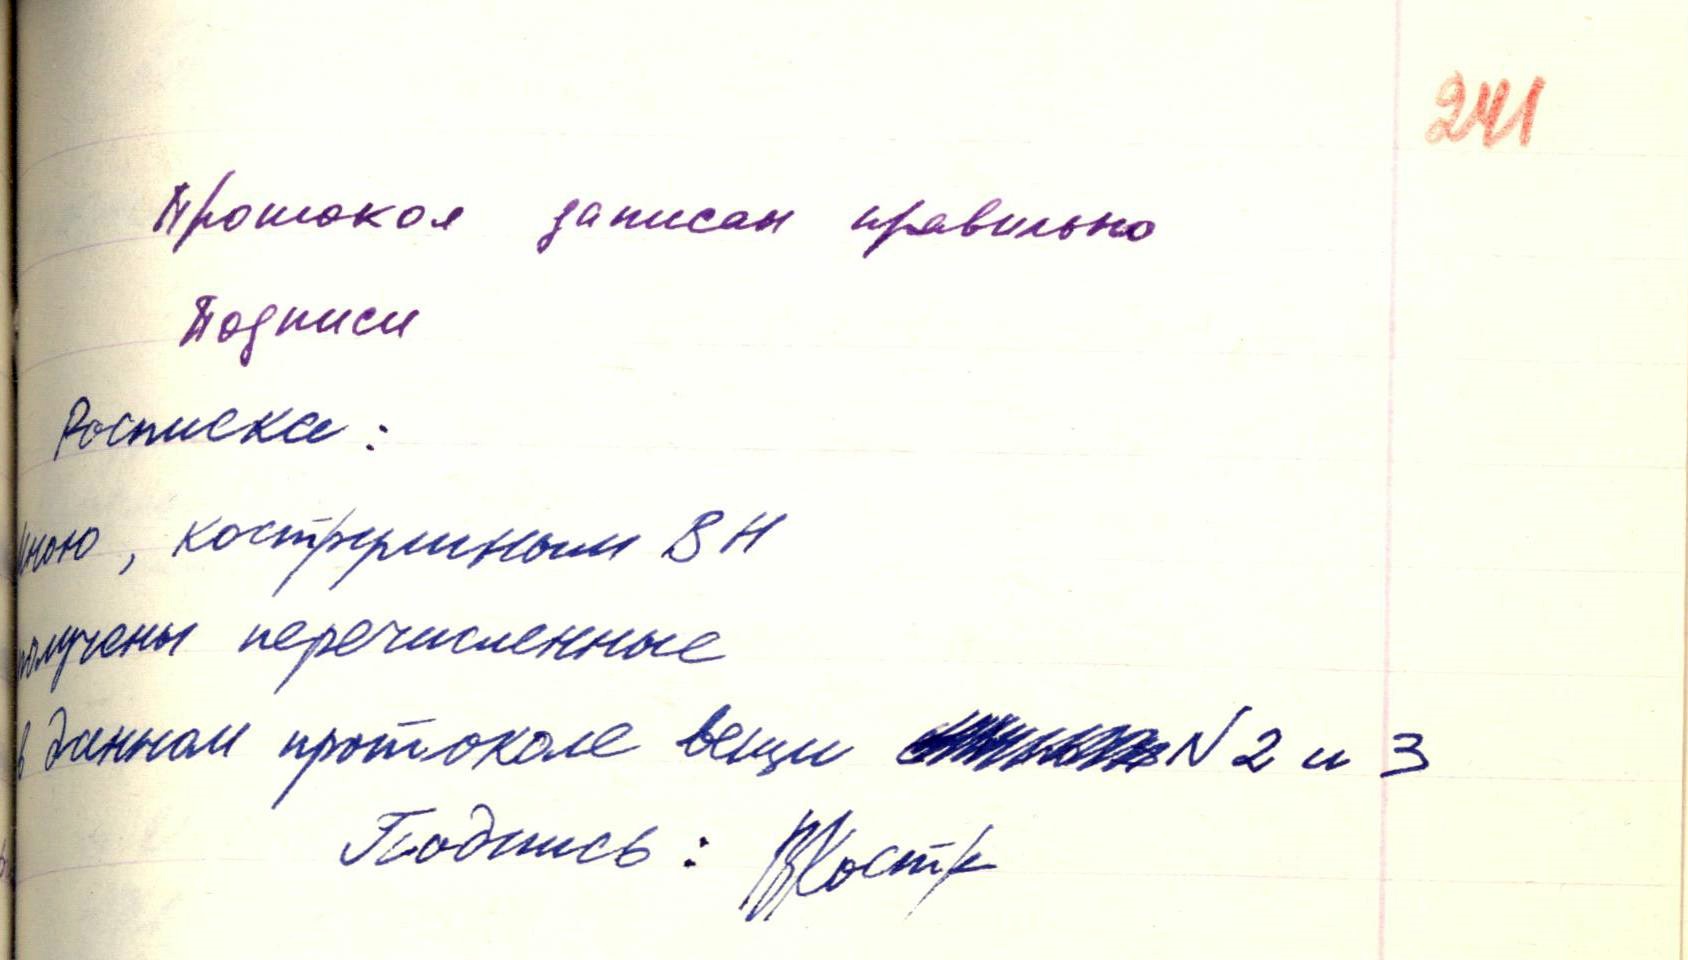 241
Протокол записан правильно
Подписи
Росписка:
Мною, Костр​улиным В Н
получены перечисленные
в данном протоколе вещи N 2 и 3
Подпись: ВКостр